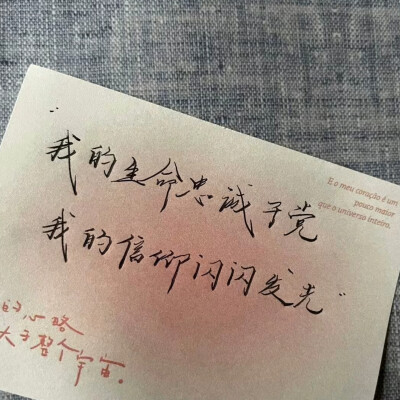 "我的生命忠诚于党
我的信仰闪闪发光"
E o meu coração é um
pouco maior
que o universo inteiro.
的心略
大于整个宇宙。